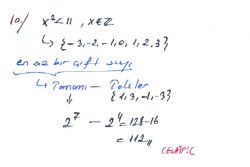 10/ x² < 11, x ∈ ℤ
↳ {-3, -2, -1, 0, 1, 2, 3}
en az bir çift sayı
↳ Tamamı - Tekler
↓ {1, 3, -1, -3}
2⁷ - 2⁴ = 128 - 16
= 112 //
CEVAP: C